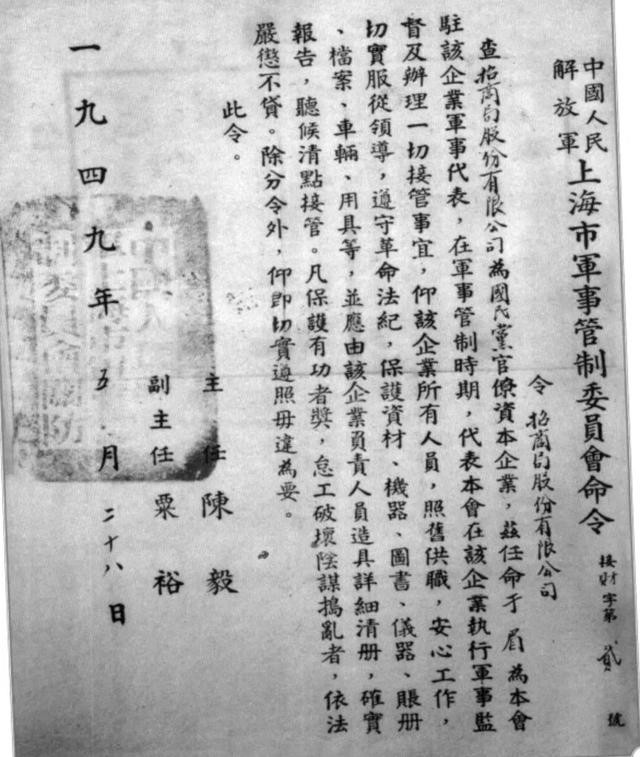 中國人民解放軍上海市軍事管制委員會命令 接財字第貳號
令 招商局股份有限公司
查招商局股份有限公司為國民黨官僚資本企業，茲任命于眉為本會
駐該企業軍事代表，在軍事管制時期，代表本會在該企業執行軍事監
督及辦理一切接管事宜，仰該企業所有人員，照舊供職，安心工作，
切實服從領導，遵守革命法紀，保護資材、機器、圖書、儀器、賬冊
、檔案、車輛、用具等，並應由該企業負責人員造具詳細清冊，確實
報告，聽候清點接管。凡保護有功者獎，怠工破壞陰謀搗亂者，依法
嚴懲不貸。除分令外，仰即切實遵照毋違為要。
此令。
主任 陳毅
副主任 粟裕
一九四九年五月二十八日